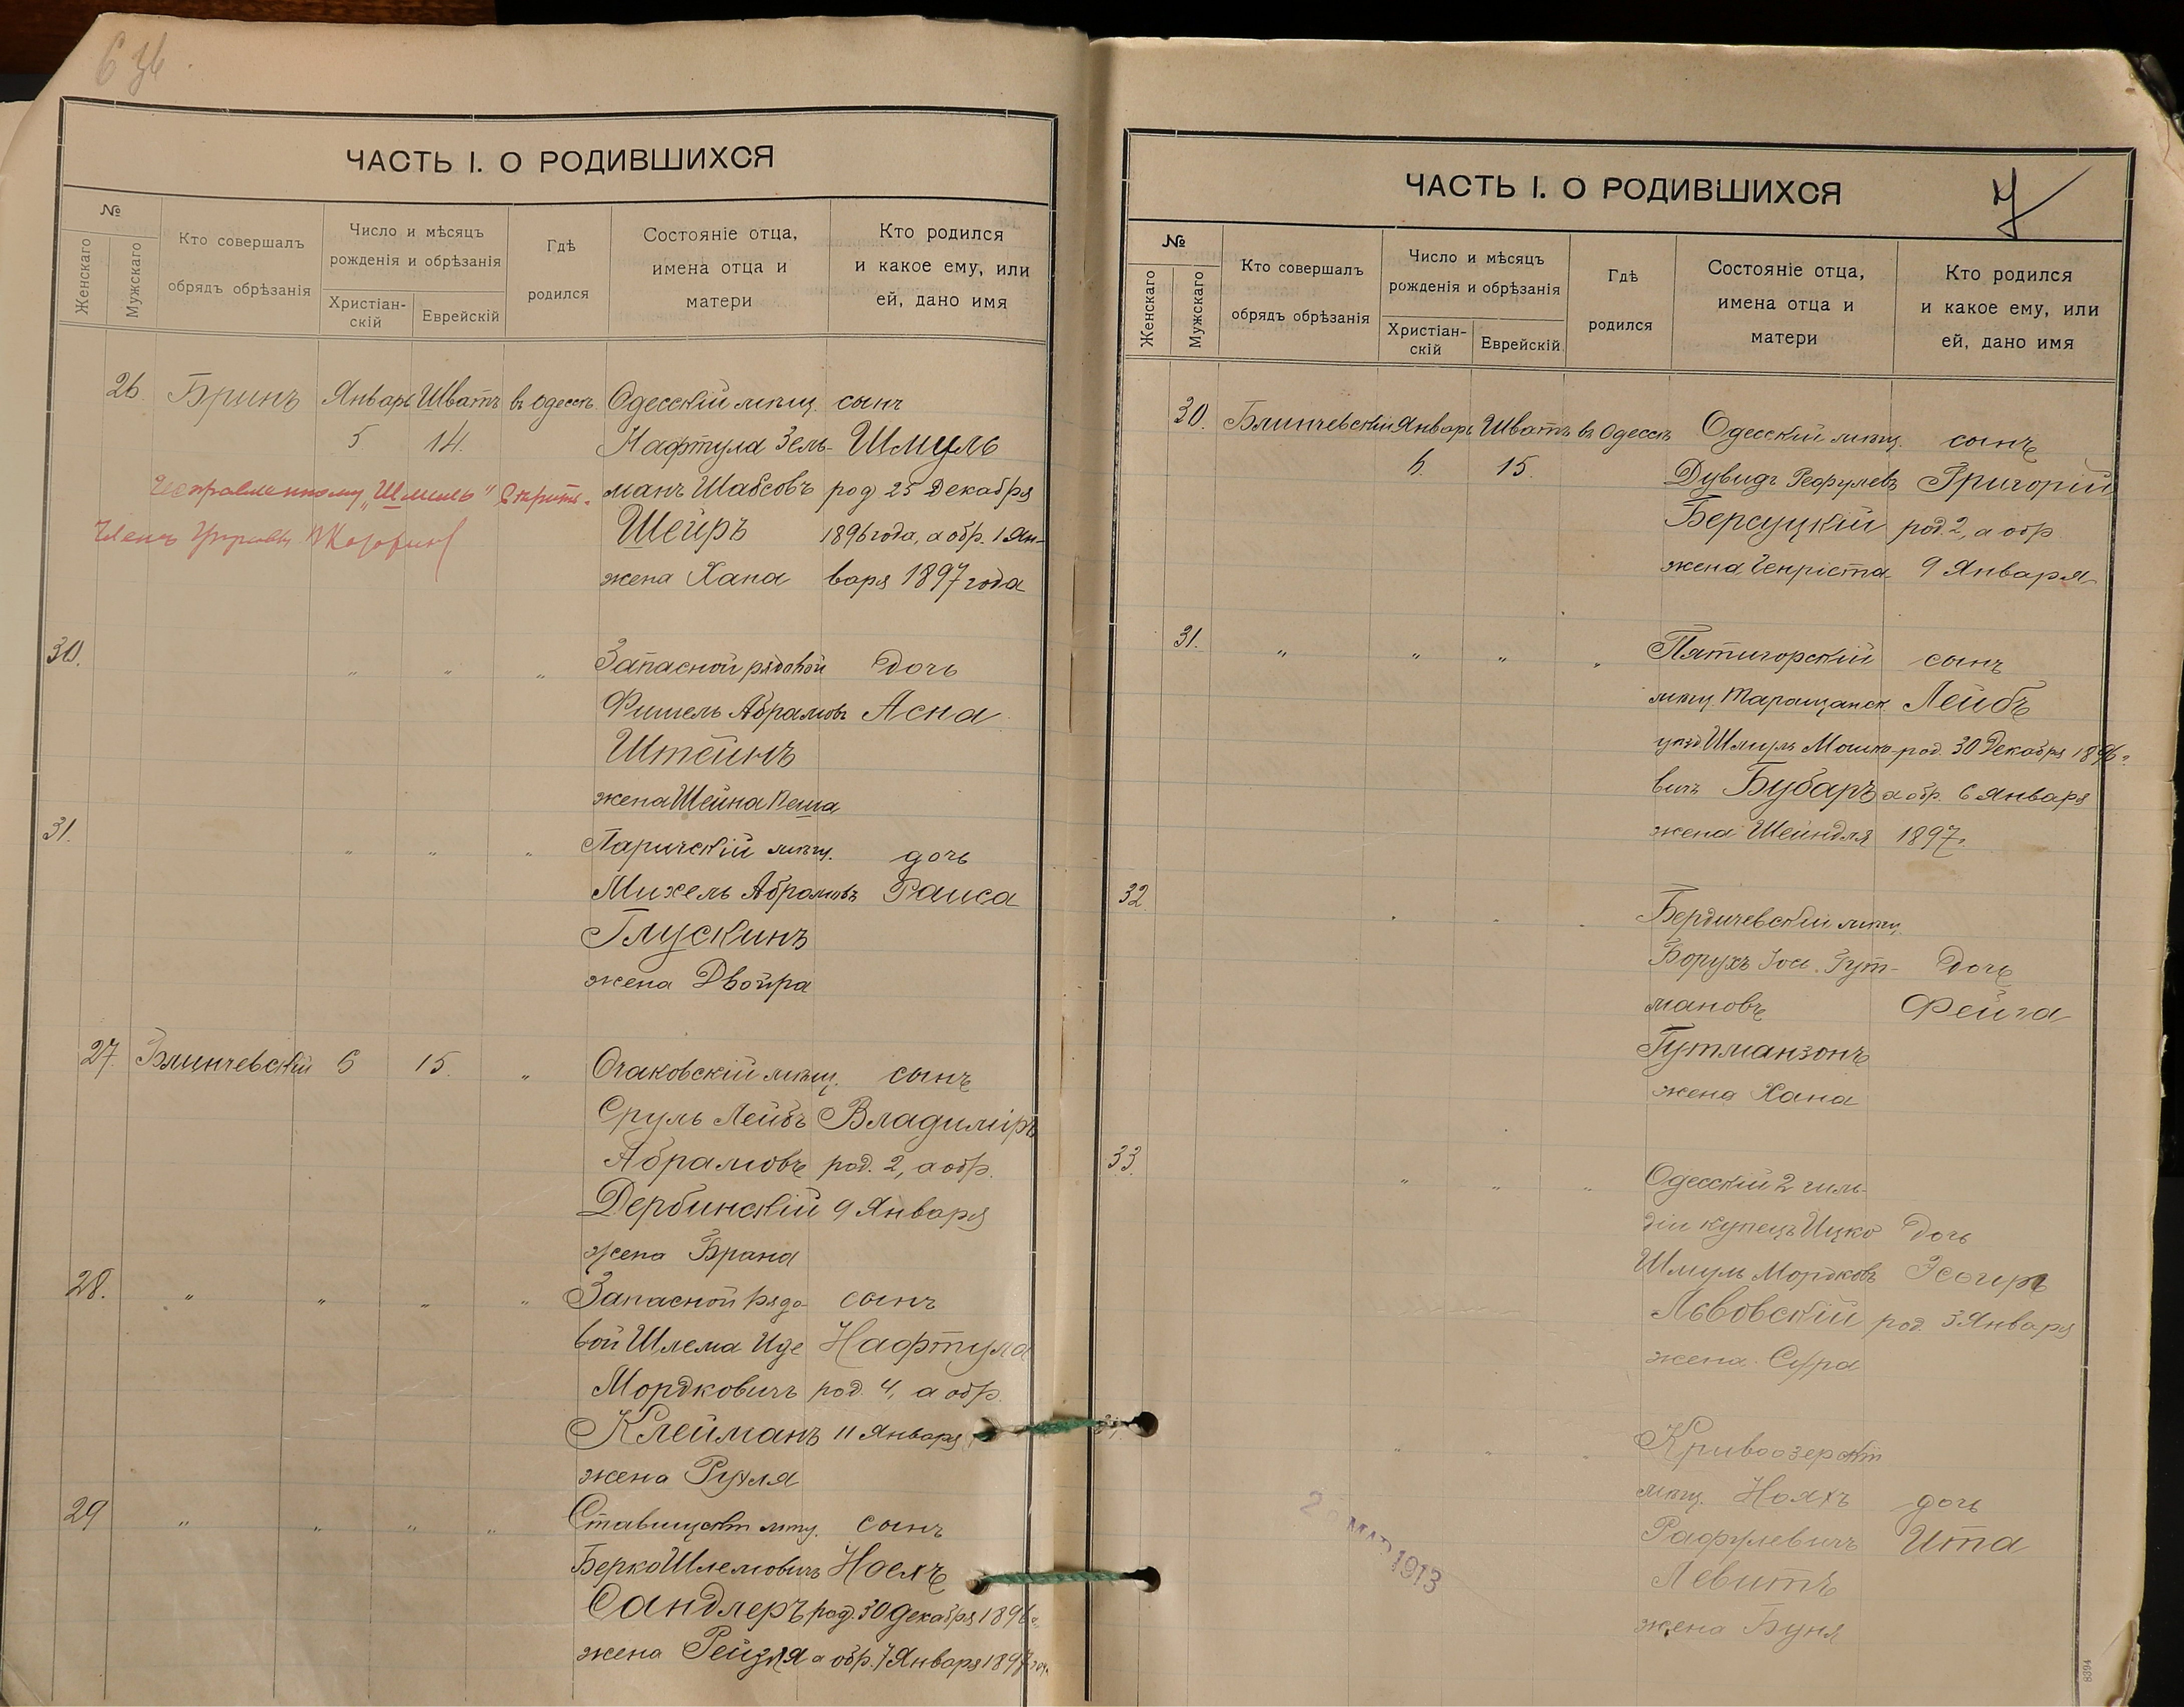 ЧАСТЬ I. О РОДИВШИХСЯ
№
Женскаго
Мужскаго
Кто совершалъ
обрядъ обрѣзанія
Число и мѣсяцъ
рожденія и обрѣзанія
Христіан-
скій
Еврейскій
Гдѣ
родился
Состояніе отца,
имена отца и
матери
Кто родился
и какое ему, или
ей, дано имя
26. Бринъ Январь Шватъ въ Одессѣ Одесскій мѣщ. сынъ
5 14. Нафтула Зель- Шмуль
Исправленному „Шмуль" манъ Шабсовъ род 25 Декабря
Членъ Управы Шейръ 1896 года, а обр. 1 Ян-
жена Хана варя 1897 года
30. „ „ „ Запасной рядовой дочь
Фишель Абрамовъ Асна
Штейнъ
жена Шейна Пеша
31. „ „ „ Паричскій мѣщ. дочь
Михель Абрамовъ Раиса
Глускинъ
жена Двойра
27. Блинчевскій 6 15. „ Очаковскій мѣщ. сынъ
Сруль Лейбъ Владиміръ
Абрамовъ род. 2, а обр.
Дербинскій 9 Января
жена Брана
28. „ „ „ „ Запасной рядо- сынъ
вой Шлема Иде Нафтула
Мордковичъ род. 4, а обр.
Клейманъ 11 Января
жена Рухля
29 „ „ „ „ Ставищскій мѣщ. сынъ
Берко Шлемовичъ Ноехъ
Сандлеръ род. 30 Декабря 1896 г.
жена Рейзля а обр. 7 Января 1897 года
ЧАСТЬ I. О РОДИВШИХСЯ
7
№
Женскаго
Мужскаго
Кто совершалъ
обрядъ обрѣзанія
Число и мѣсяцъ
рожденія и обрѣзанія
Христіан-
скій
Еврейскій
Гдѣ
родился
Состояніе отца,
имена отца и
матери
Кто родился
и какое ему, или
ей, дано имя
30. Блинчевскій Январь Шватъ въ Одессѣ Одесскій мѣщ. сынъ
6. 15. Дувидъ Рефулевъ Григорій
Берсуцкій род. 2, а обр
жена Генріета 9 Января
31. „ „ „ „ Пятигорскій сынъ
мѣщ. Таращанск. Лейбъ
уѣзд Шмуль Мошко- род. 30 Декабря 1896 г.
вичъ Бубаръ а обр. 6 Января
жена Шейндля 1897 г.
32. „ „ „ Бердичевскій мѣщ.
Борухъ Іос. Гут- дочь
мановъ Фейга
Гутманзонъ
жена Хана
33. „ „ „ Одесскій 2 гиль-
діи купецъ Ицко дочь
Шмуль Мордковъ Эсѳирь
Львовскій род. 3 Января
жена Сура
„ „ „ Кривоозерскій
мѣщ. Нояхъ дочь
Рафулевичъ Ита
Левитъ
жена Буня
МАР 1913
8394